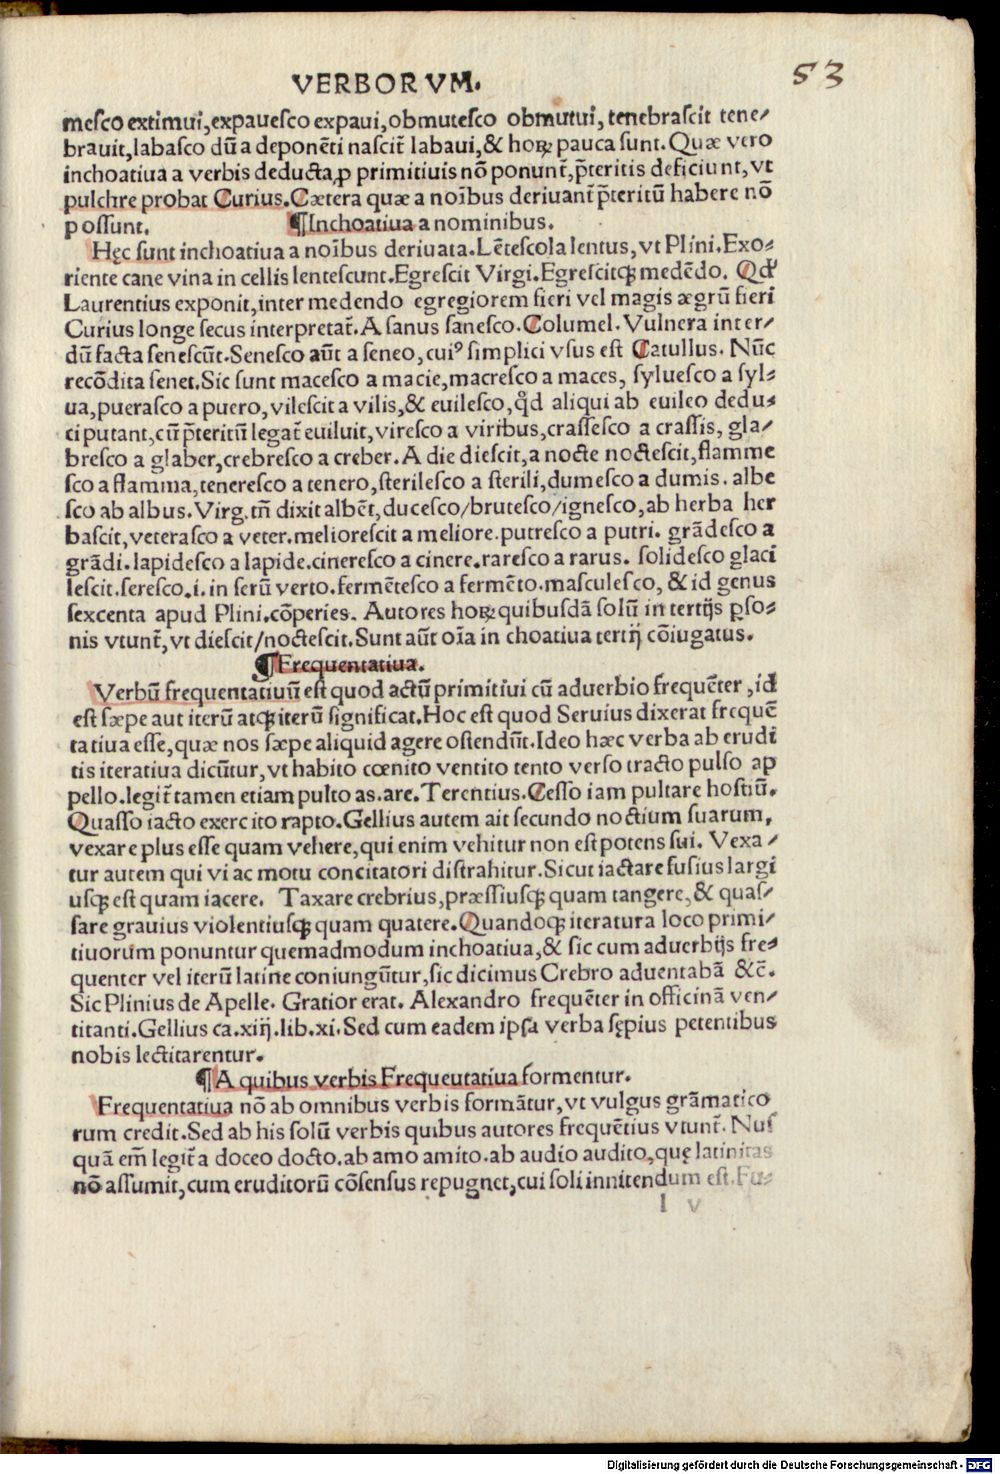 VERBORVM.
53
mesco extimui,expauesco expaui,obmutesco obmutui, tenebrascit tene/
brauit,labasco dū a deponēti nascit̄ labaui,& hoꝝ pauca sunt. Quæ vero
inchoatiua a verbis deducta,ꝓ primitiuis nō ponunt̄,p̄teritis deficiunt,vt
pulchre probat Curius.Cætera quæ a noībus deriuant̄ p̄teritū habere nō
possunt. ¶Inchoatiua a nominibus.
Hęc sunt inchoatiua a noībus deriuata.Lētesco la lentus, vt Plini.Exo⸗
riente cane vina in cellis lentescunt.Egrescit Virgi.Egrescitqꝫ medēdo. Qd'
Laurentius exponit,inter medendo egregiorem fieri vel magis ægrū fieri
Curius longe secus interpretat̄. A sanus sanesco.Columel. Vulnera inter/
dū facta senescūt.Senesco aūt a seneo, cuiꝰ simplici vsus est Catullus. Nūc
recōdita senet.Sic sunt macesco a macie,macresco a maces, syluesco a syl⸗
ua,puerasco a puero, vilescit a vilis,& euilesco,qđ aliqui ab euileo dedu⸗
ci putant,cū p̄teritū legat̄ euiluit,viresco a viribus,crassesco a crassis, gla/
bresco a glaber,crebresco a creber. A die diescit,a nocte noctescit,flamme
sco a flamma,teneresco a tenero,sterilesco a sterili,dumesco a dumis. albe
sco ab albus. Virg.tn̄ dixit albēt, ducesco/brutesco/ignesco,ab herba her
bascit,veterasco a veter.meliorescit a meliore.putresco a putri. grādesco a
grādi.lapidesco a lapide.cineresco a cinere.raresco a rarus. solidesco glaci
lescit.seresco.i. in serū verto.fermētesco a fermēto.masculesco, & id genus
sexcenta apud Plini.cōperies. Autores hoꝝ quibusdā solū in tertijs ꝑso⸗
nis vtunt̄,vt diescit/noctescit.Sunt aūt oīa in choatiua tertij cōiugatus.
¶Frequentatiua.
Verbū frequentatiuū est quod actū primitiui cū aduerbio frequēter ,id
est sæpe aut iterū atqꝫ iterū significat.Hoc est quod Seruius dixerat frequē
tatiua esse,quæ nos sæpe aliquid agere ostendūt.Ideo hæc verba ab erudi
tis iteratiua dicūtur,vt habito cœnito ventito tento verso tracto pulso ap
pello.legit̄ tamen etiam pulto as.are.Terentius.Cesso iam pultare hostiū.
Quasso iacto exercito rapto.Gellius autem ait secundo noctium suarum,
vexare plus esse quam vehere,qui enim vehitur non est potens sui. Vexa /
tur autem qui vi ac motu concitatori distrahitur.Sicut iactare fusius largi
usqꝫ est quam iacere. Taxare crebrius,præssiusqꝫ quam tangere,& quas/
sare grauius violentiusqꝫ quam quatere.Quandoqꝫ iteratura loco primi/
tiuorum ponuntur quemadmodum inchoatiua,& sic cum aduerbijs fre⸗
quenter vel iterū latine coniungūtur,sic dicimus Crebro aduentabā &c̄.
Sic Plinius de Apelle. Gratior erat. Alexandro frequēter in officinā ven/
titanti.Gellius ca.xiij.lib.xi.Sed cum eadem ipsa verba sępius petentibus
nobis lectitarentur.
¶A quibus verbis Frequeutatiua formentur.
Frequentatiua nō ab omnibus verbis formātur,vt vulgus grāmatico
rum credit.Sed ab his solū verbis quibus autores frequētius vtunt̄. Nus
quā em̄ legit̄ a doceo docto.ab amo amito.ab audio audito,quę latinitas
nō assumit,cum eruditorū cōsensus repugnet,cui soli innitendum est.Fu⸗
l v
Digitalisierung gefördert durch die Deutsche Forschungsgemeinschaft - DFG